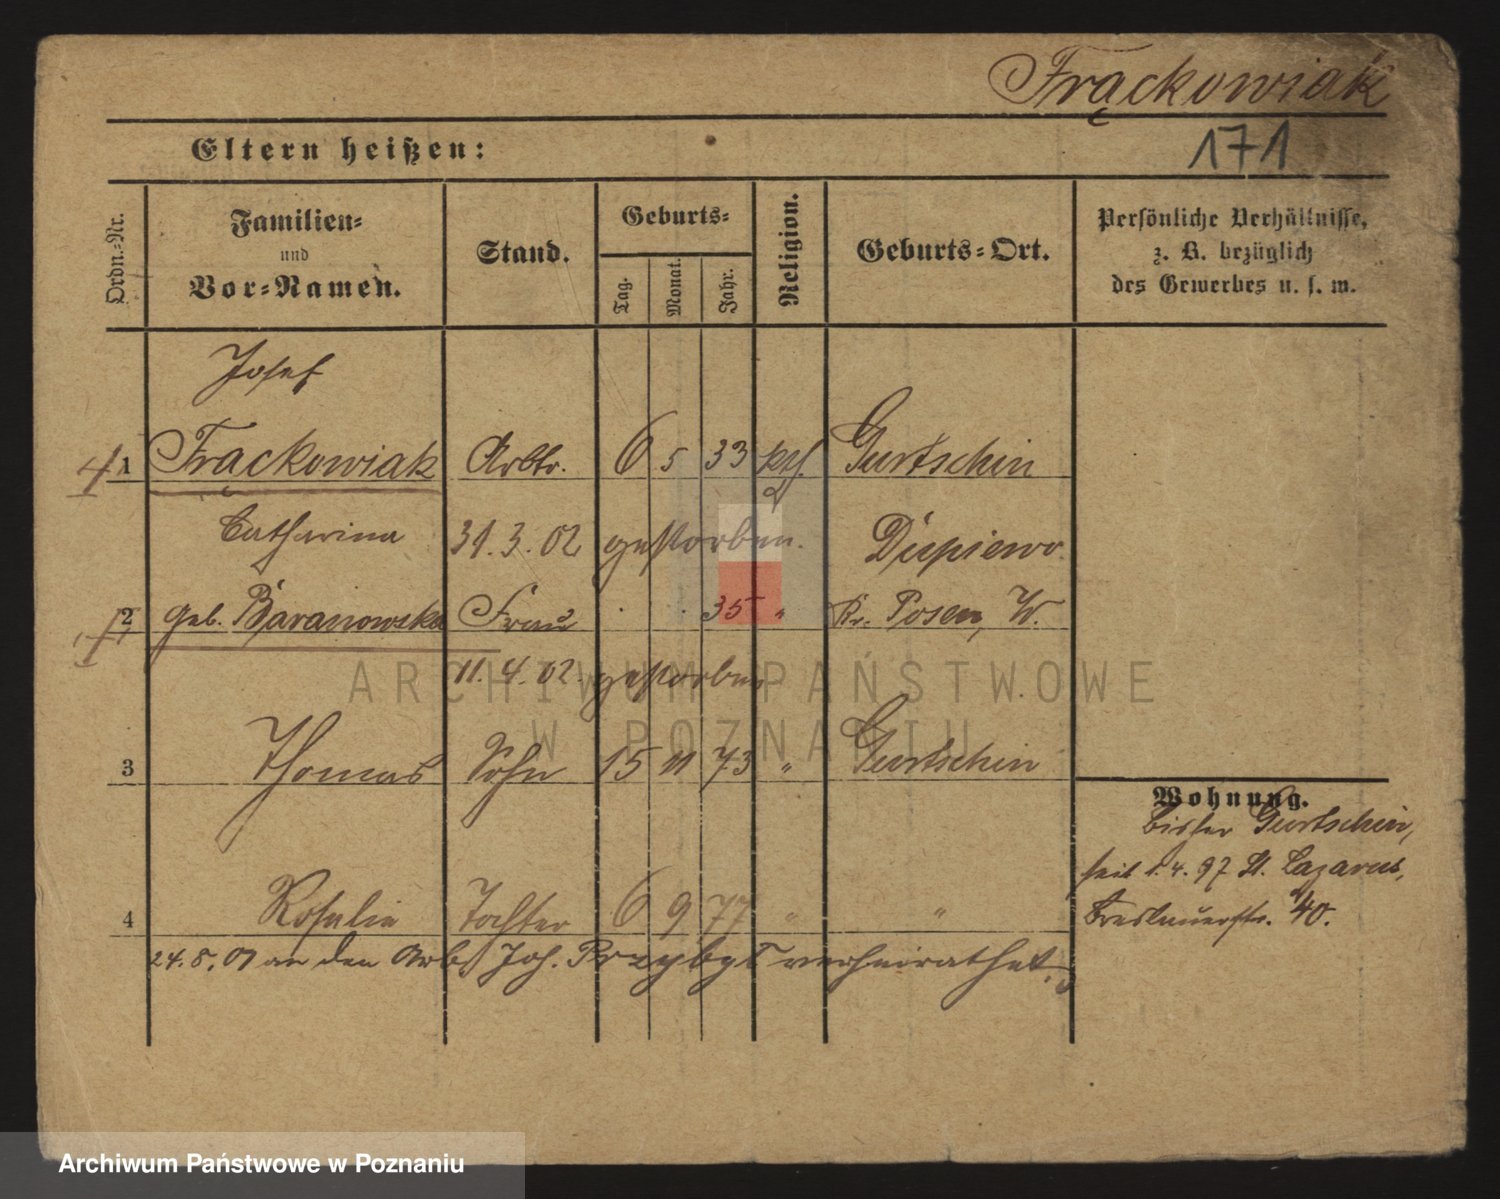 Frąckowiak
171
Eltern heißen:
Ordn.=Nr.
Familien=
und
Vor=Namen.
Stand.
Geburts=
Tag.
Monat.
Jahr.
Religion.
Geburts=Ort.
Persönliche Verhältnisse,
z. B. bezüglich
des Gewerbes u. s. w.
Josef
1 Frąckowiak Arbtr. 6 5 33 kth. Gurtschin
Catharina 31.3.02 gestorben. Dupiewo
2 geb. Baranowska Frau 35 " Kr. Posen, W.
11.4.02. gestorben
3 Thomas Sohn 15 11 73 " Gurtschin
4 Rosalie Tochter 6 9 77 " "
24.8.01 an den Arb. Joh. Przybyl verheirathet.
Wohnung.
bisher Gurtschin,
seit 1.4.97 St. Lazarus,
Breslauerstr. 40.
ARCHIWUM PAŃSTWOWE
W POZNANIU
Archiwum Państwowe w Poznaniu